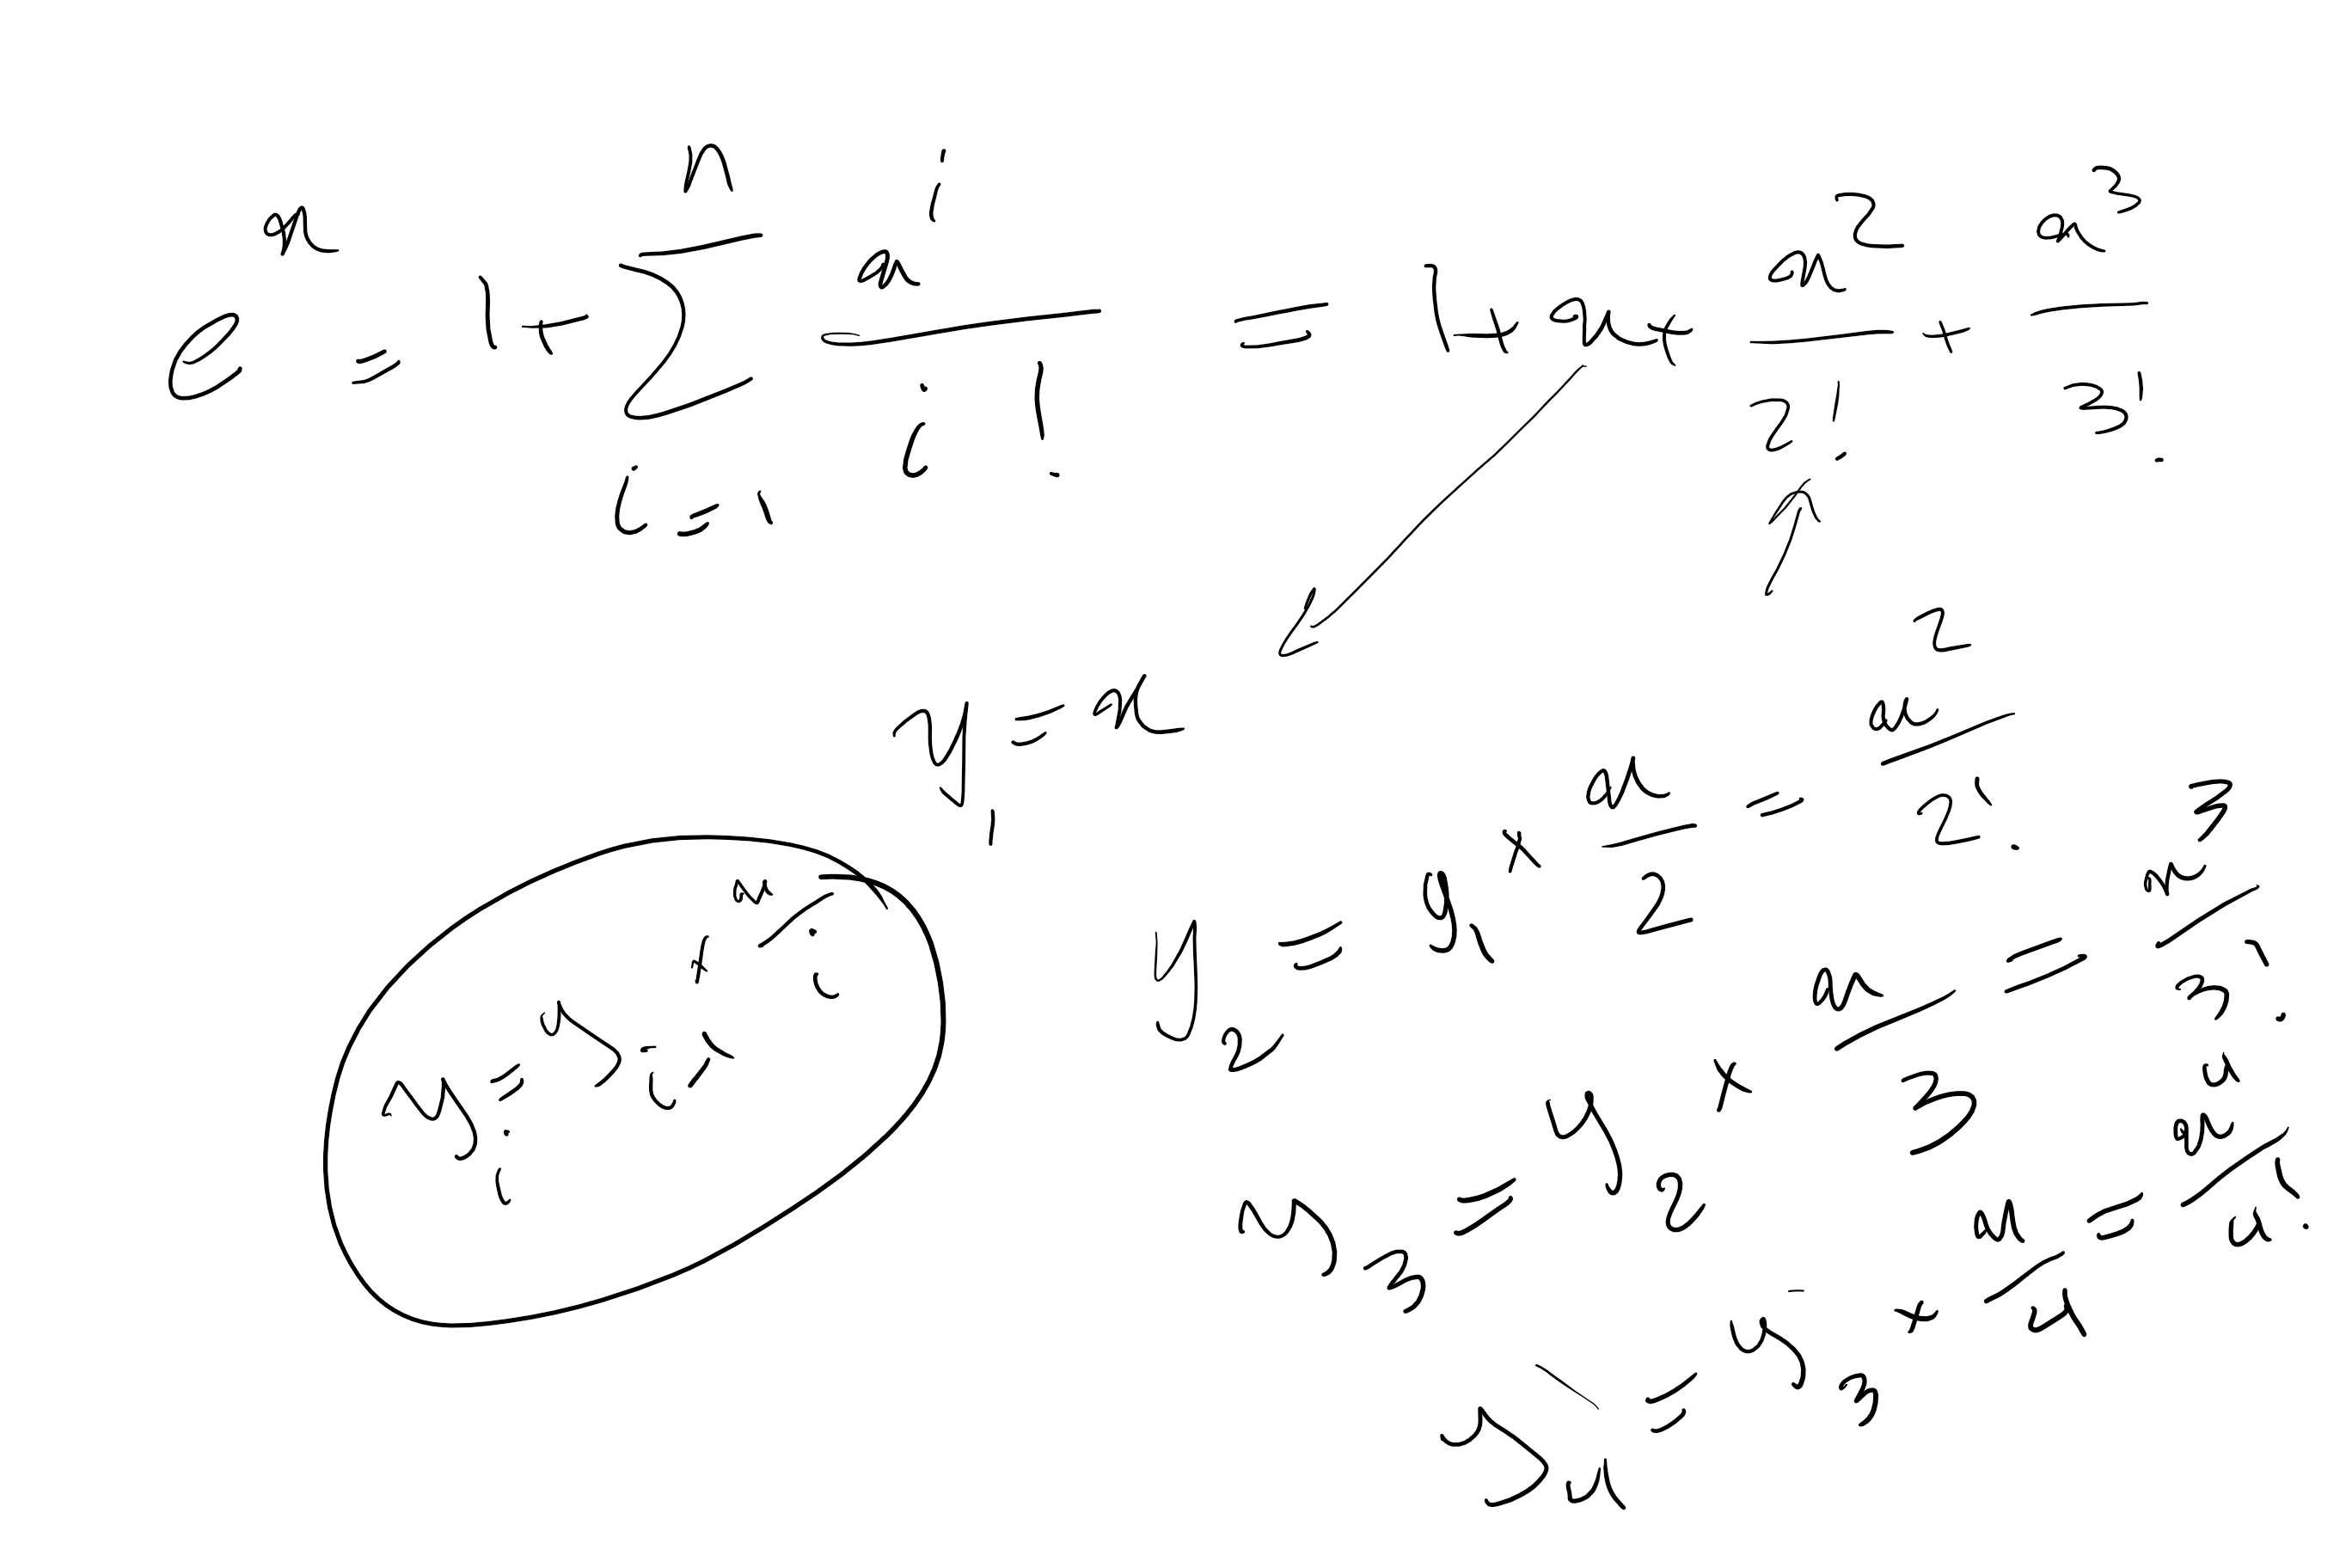 e^x = 1 + \sum_{i=1}^{n} \frac{x^i}{i!} = 1 + x + \frac{x^2}{2!} + \frac{x^3}{3!}
y_1 = x
y_2 = y_1 × \frac{x}{2} = \frac{x^2}{2!}
y_3 = y_2 × \frac{x}{3} = \frac{x^3}{3!}
y_4 = y_3 × \frac{x}{4} = \frac{x^4}{4!}
y_i = y_{i-1} × \frac{x}{i}